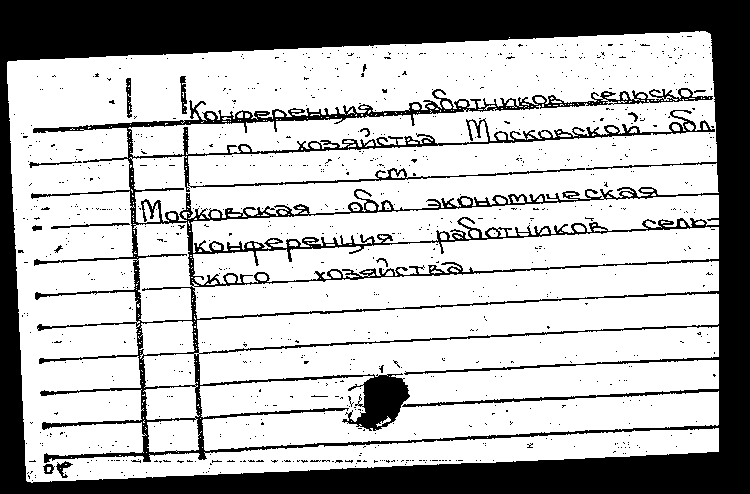 Конференция работников сельско-
го хозяйства Московской обл.
см.
Московская обл. экономическая
конференция работников сель-
ского хозяйства.